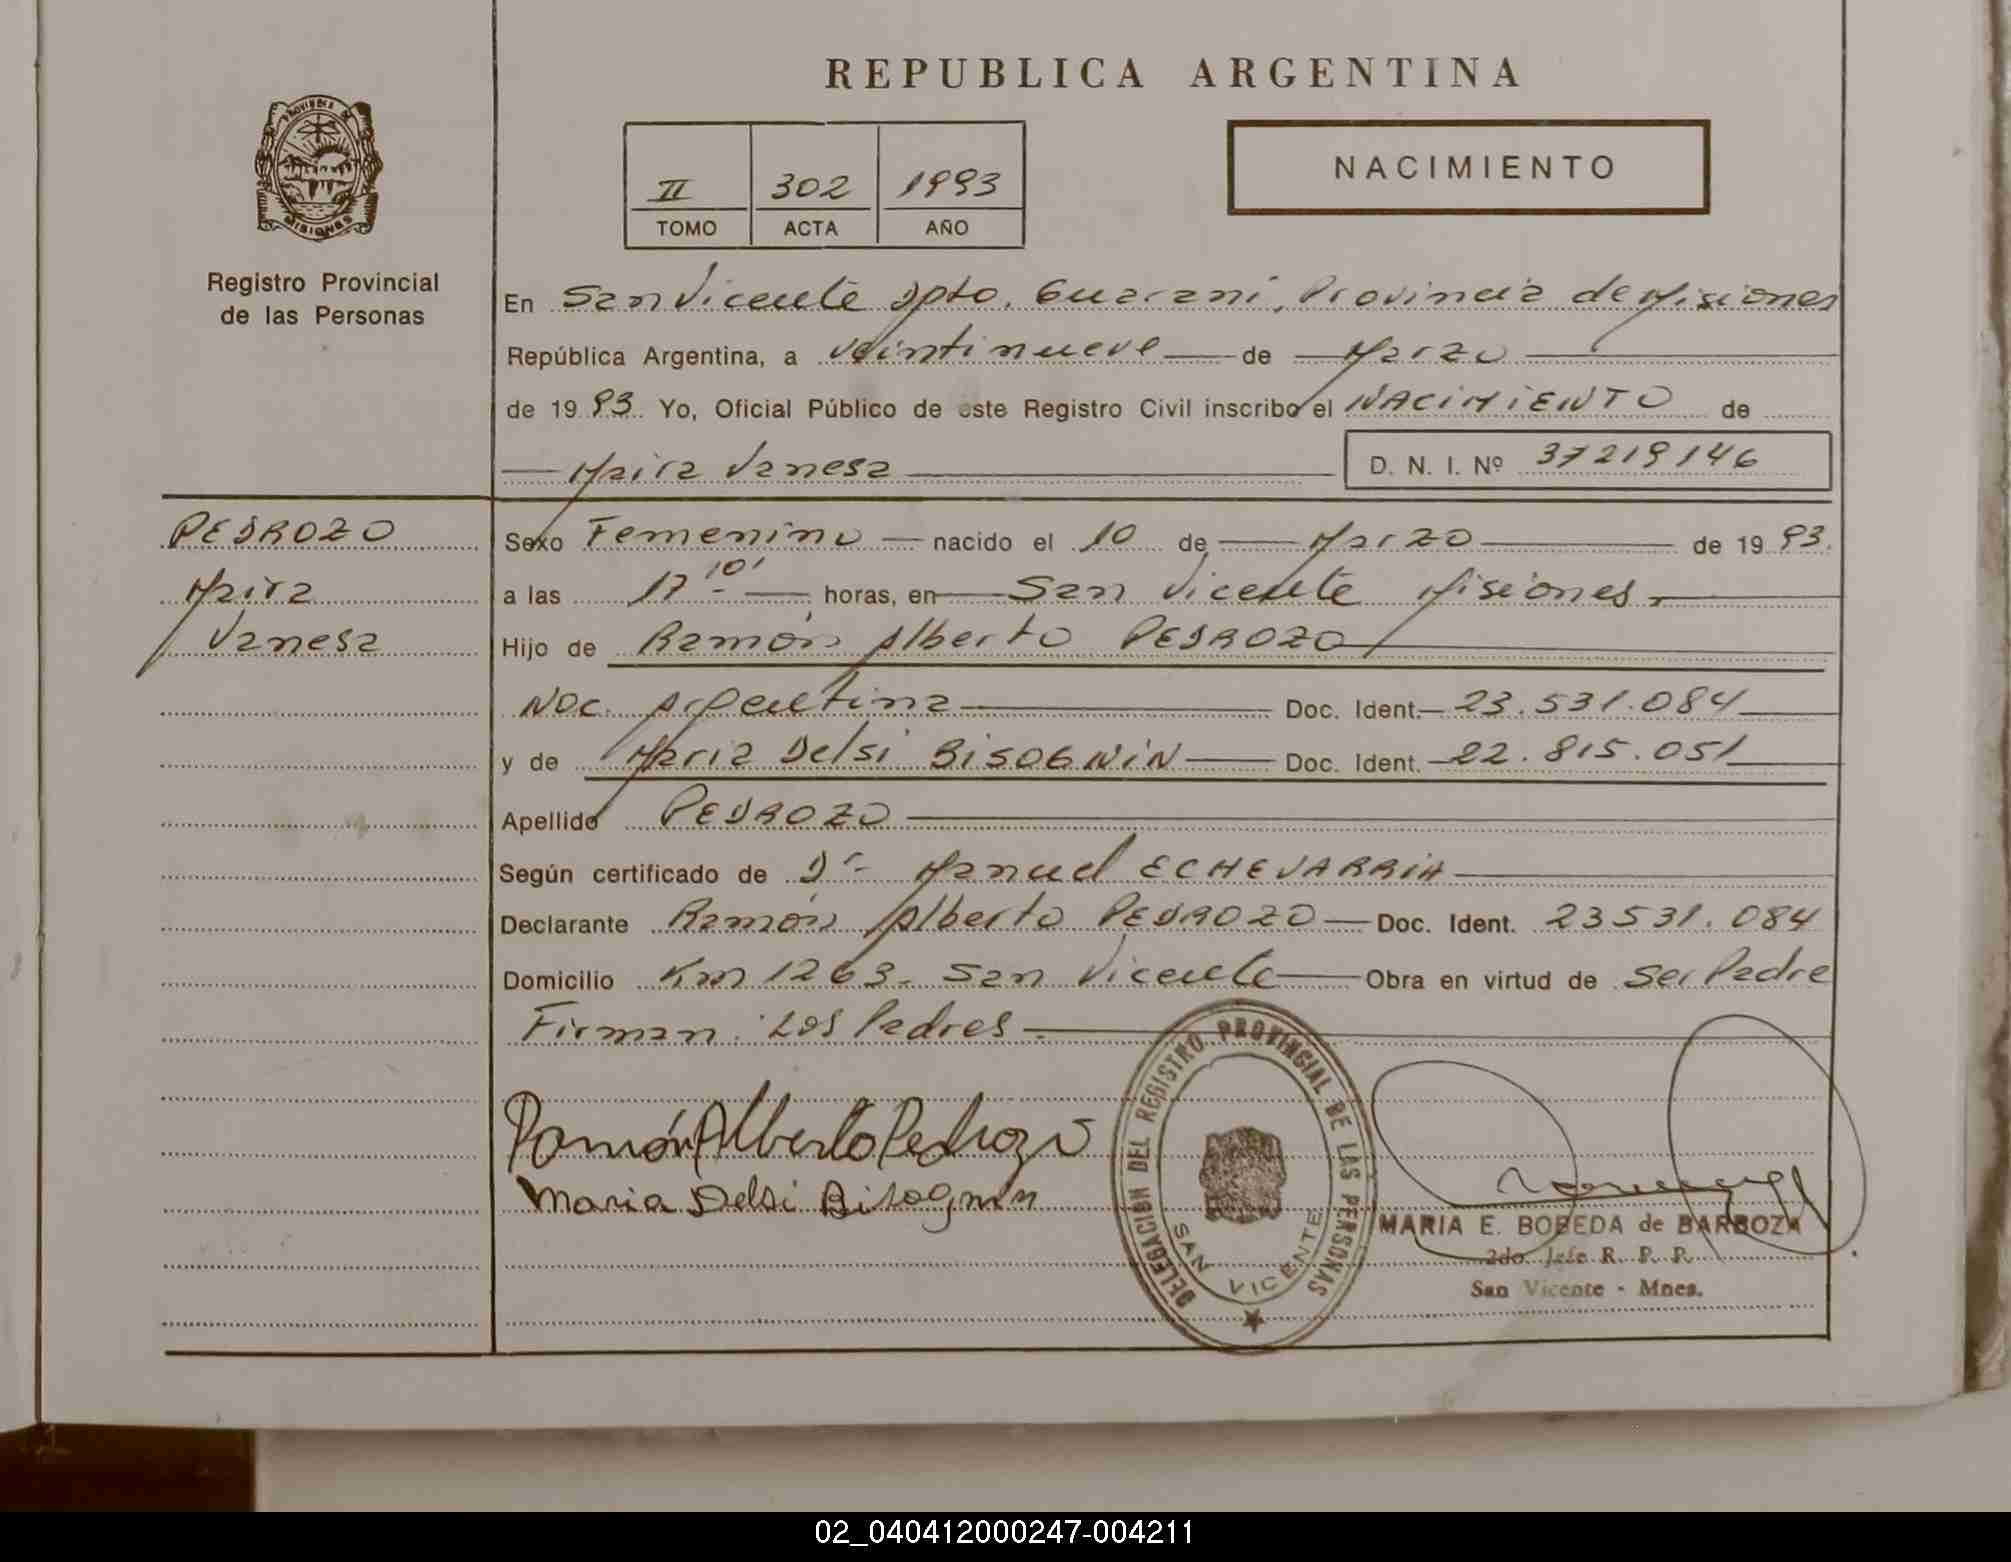 REPUBLICA ARGENTINA
PROVINCIA DE MISIONES
II 302 1993
TOMO ACTA AÑO
NACIMIENTO
Registro Provincial
de las Personas
En San Vicente Dpto. Guaraní, Provincia de Misiones
República Argentina, a veintinueve de Marzo
de 1993 Yo, Oficial Público de este Registro Civil inscribo el NACIMIENTO de
Maira Vanesa D. N. I. Nº 37219146
PEDROZO
Maira
Vanesa
Sexo Femenino nacido el 10 de Marzo de 1993.
a las 17 10' horas, en San Vicente Misiones.
Hijo de Ramón Alberto PEDROZO
Nac. Argentina Doc. Ident. 23.531.084
y de Maria Delsi BISOGNIN Doc. Ident. 22.815.051
Apellido PEDROZO
Según certificado de Dr. Manuel ECHEVARRIA
Declarante Ramón Alberto PEDROZO Doc. Ident. 23531.084
Domicilio Km 1263. San Vicente Obra en virtud de Ser Padre
Firman: Los Padres.
Ramón Alberto Pedrozo
Maria Delsi Bisognin
DELEGACION DEL REGISTRO PROVINCIAL DE LAS PERSONAS
SAN VICENTE
MARIA E. BOBEDA de BARBOZA
2do. Jefe R. P. P.
San Vicente - Mnes.
02_040412000247-004211